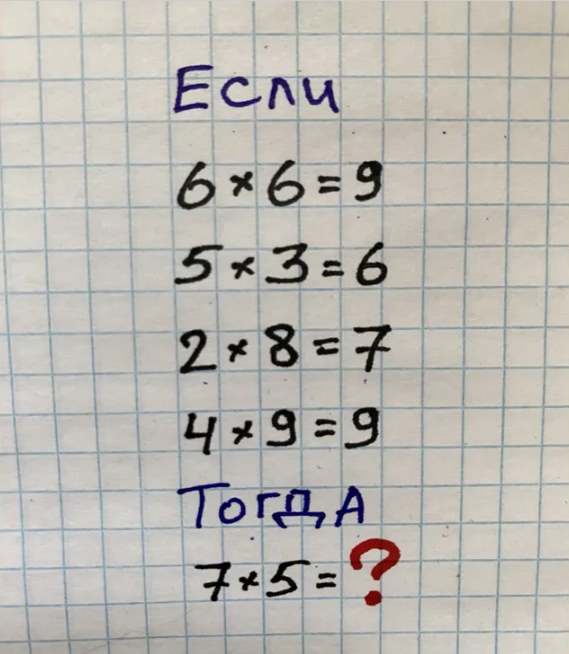 Если
6 × 6 = 9
5 × 3 = 6
2 × 8 = 7
4 × 9 = 9
Тогда
7 × 5 = ?